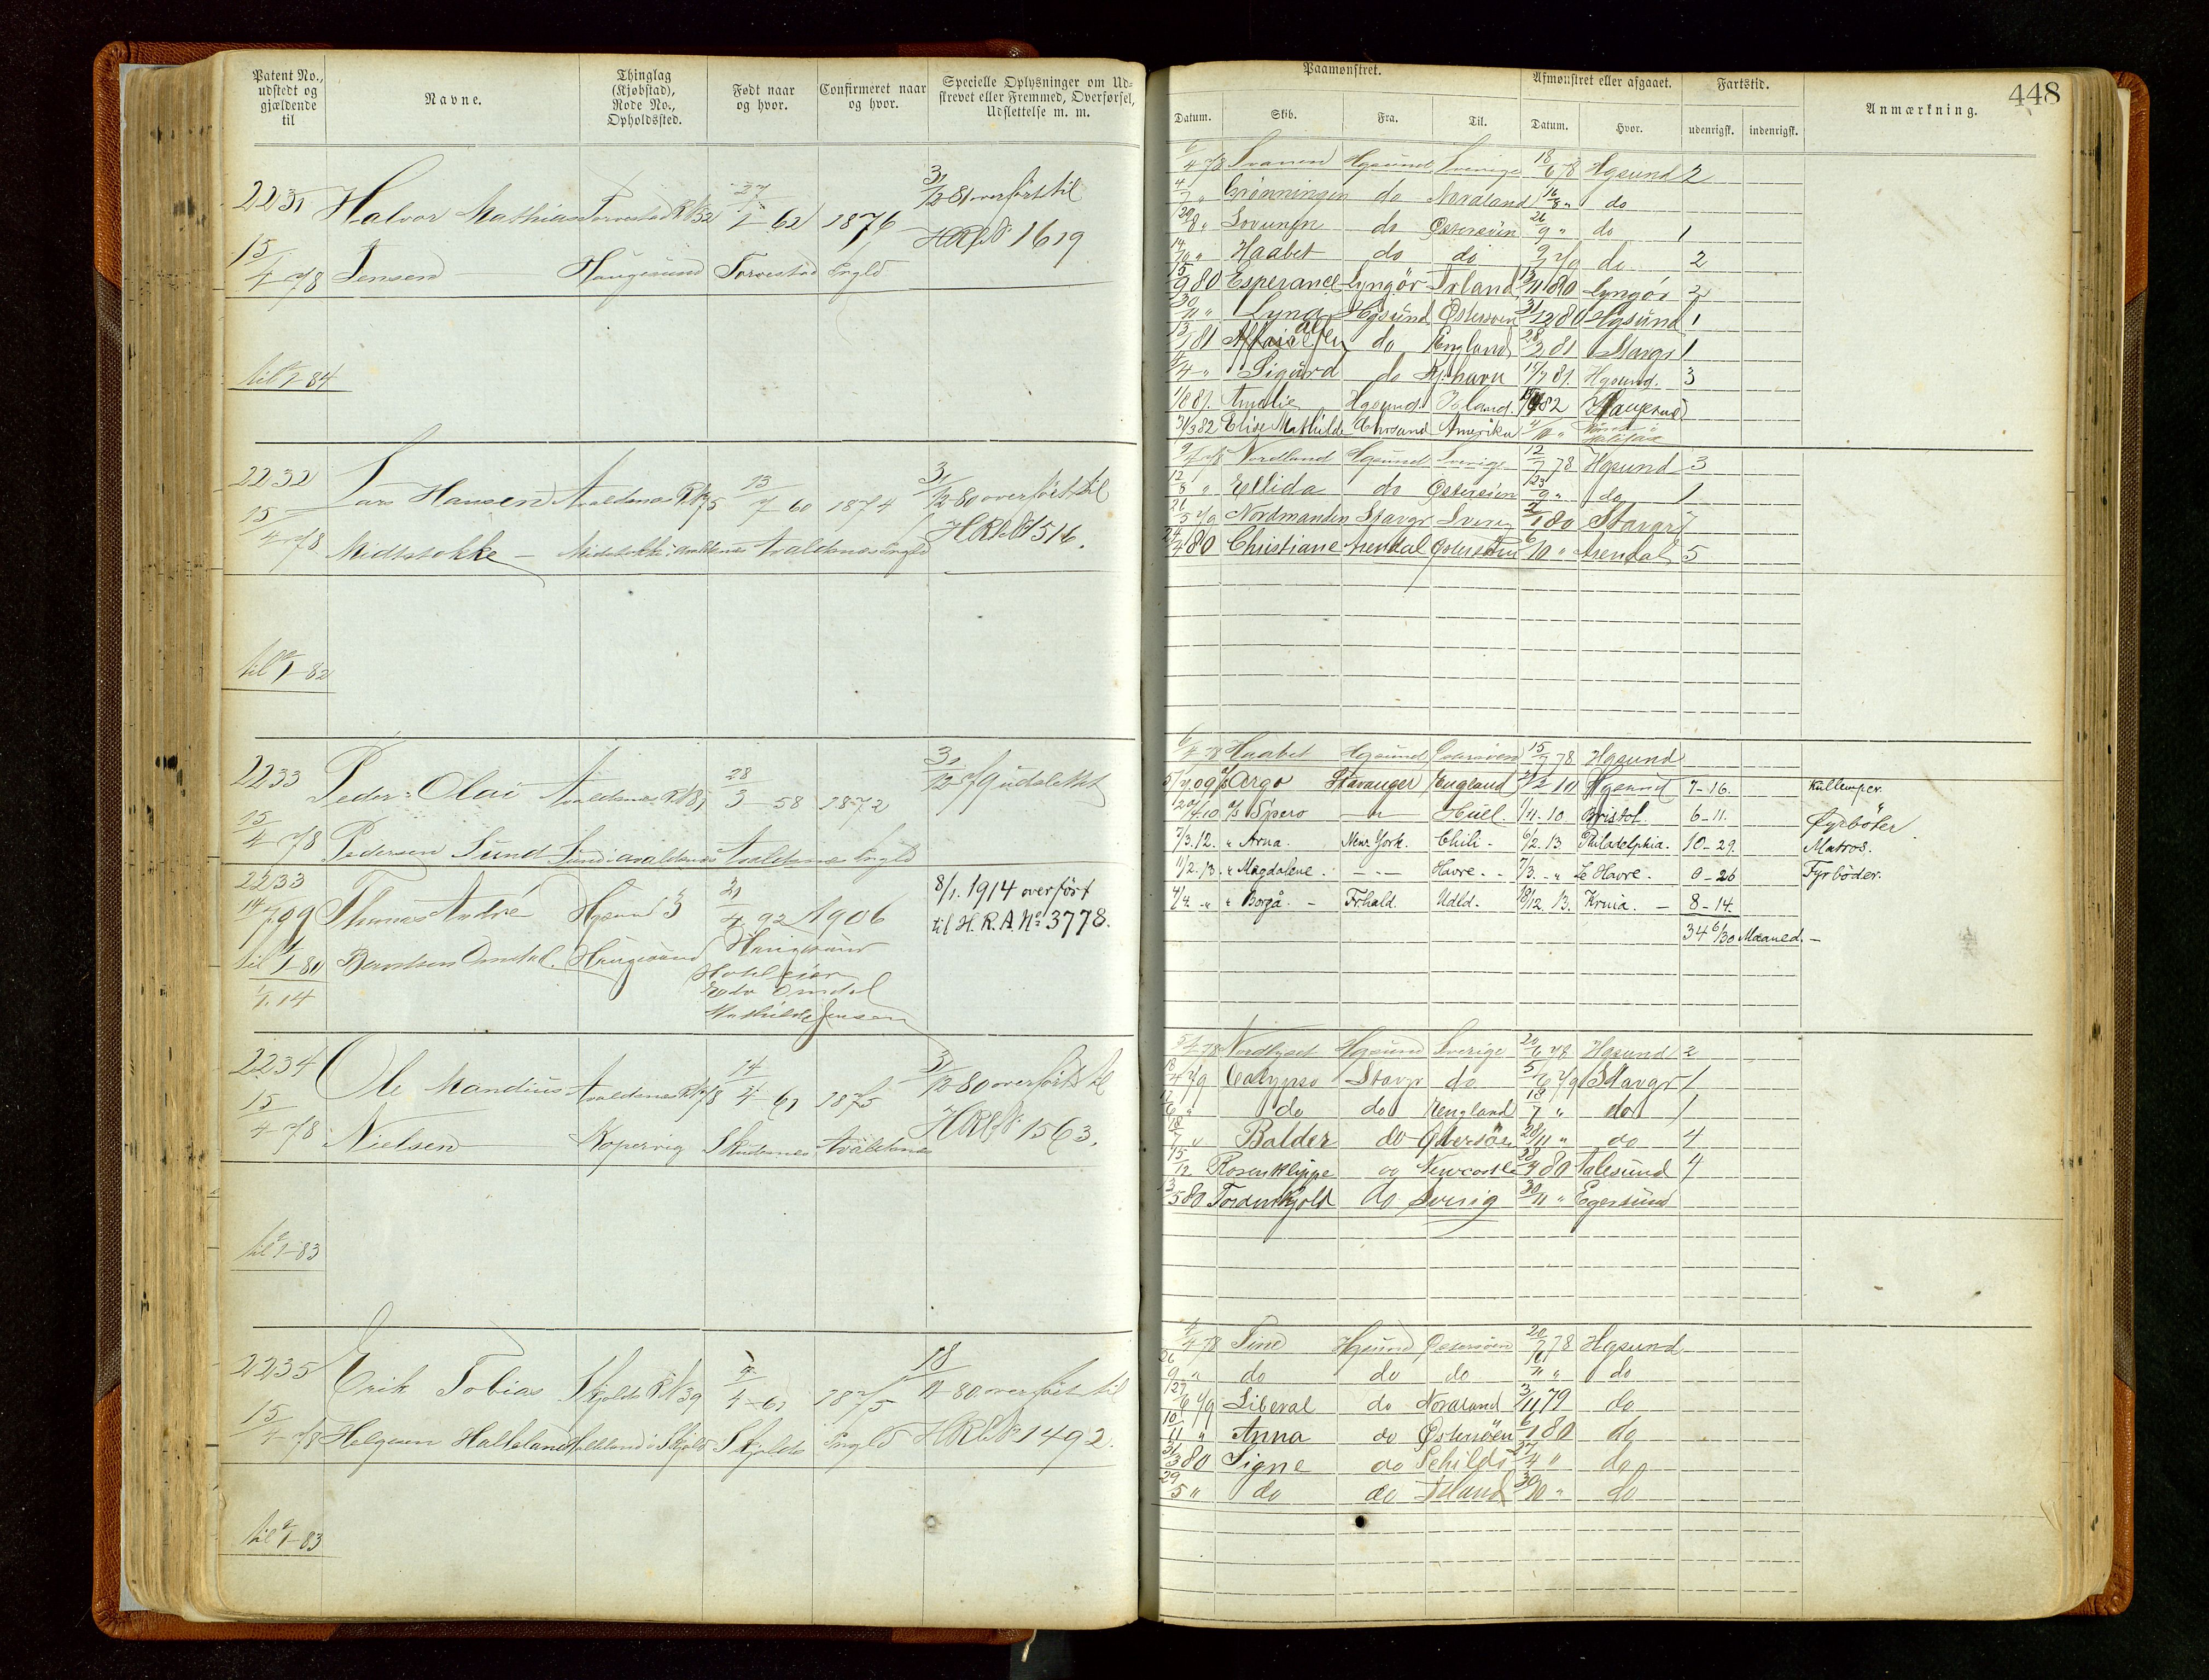 Patent No., udstedt og gjældende til
Navne.
Thinglag (Kjøbstad), Rode No., Opholdssted.
Født naar og hvor.
Confirmeret naar og hvor.
Specielle Oplysninger om Udskrevet eller Fremmed, Overførsel, Udslettelse m. m.
2231 Halvor Mathias Torvestad R No 32 27/1 - 62 1876 31/12 81 overført til
15/4 78 Jensen Haugesund Torvestad Engld HRL No 1619
til 1/1 - 84
2232 Lars Hansen Avaldsnes R No 75 13/7 60 1874 31/12 80 overført til
15/4 78 Midtstokke - Avaldsnes Engld HRL No 516.
til 1/1 - 82
2233 Peder Olai Avaldsnes R No 81 28/3 - 58 1872 31/12 79 udslettet
15/4 78 Pedersen Sund Sund i Avaldsnes Avaldsnes Engld
2233 Thomas André Hgsund 3 21/4 92 1906 8/1. 1914 overført
14/7 09 til H.R.A. No 3778.
til 1/1 - 81 Berntsen Omdal. Haugesund Haugesund
1/1. 14 Hoteleier
Omdal
Mathilde Jensen
2234 Ole Mandius Avaldsnes R No 78 14/4 - 61 1875 31/12 80 overført til
15/4 78 Nielsen Kopervig Skudesnes Avaldsnes HRL No 1563.
til 1/1 - 83
2235 Erik Tobias Skjolds R No 39 4 - 61 1875 18/11 - 80 overført til
15/4 78 Helgesen Halleland Halleland i Skjold Skjolds Engld HRL No 1492.
til 1/1 - 83
448
Paamønstret.
Afmønstret eller afgaaet.
Fartstid.
Anmærkning.
Datum. Skib. Fra. Til. Datum. Hvor. udenrigsk. indenrigsk.
6/4 78 Svanen Hgsund Sverige 18/6 78 Hgsund 2
4/7 " Grönningen do Nordland 16/8 " do
29/8 " do Østersöen 26/9 " do 1
14/10 " Haabet do do do 2
15/9 80 Esperance Lyngör Irland Lyngör 2
30/11 " Lyna Hgsund Østersöen 31/12 80 Hgsund 1
13/1 81 do England 28/2 81 Stavgr 1
4/4 " Sigurd do Kjhavn 15/7 81. Hgsund. 3
1881. Amalie Hgsund. Island. 82 Haugesund
31/3 82 Elise Mathilde Chrsand Amerika /10 " Halifax
9/4 78 Nordland Hgsund Sverige 12/7 78 Hgsund 3
12/8 " Ellida do Østersöen 23/9 " do 1
21/5 79 Nordmanden Stavgr Sverig 2/1 80 Stavgr 7
24/4 80 Christiane Arendal Østersöen 6/10 " Arendal 5
6/4 78 Haabet Hgsund Østersöen 15/7 78 Hgsund
5/7 09 d/s Argo Stavanger England /2 10 Hgsund 7-16. Kullemper.
20/4. 10 d/s Spero -"- Hüel. 1/11. 10 Bristol. 6-11. Fyrböter.
7/3. 12. " Arna. New York. Chili - 6/2. 13 Philadelphia. 10-29. Matros.
11/2. 13. " Magdalene. - " - Havre. - 7/3. - " Le Havre. 0-26 Fyrböder.
4/4. - " " Borgå. - Fr.hald. Udld. - 18/12. 13. Krnia. - 8-14.
34 6/30 Maaned. -
5/4 78 Nordlyset Hgsund Sverige 20/6 78 Hgsund 2
18/4 79 Calypso Stavgr do 5/6 79 Stavgr 1
12/6 " do do England 18/7 " do 1
18/7 " Balder do Østersöen 28/11 " do 4
15/12 Rosenklippe og Newcastle 28/4 80 Aalesund 4
13/5 80 Tordenskjold do Sverig 30/11 " Egersund
6/4 78 Tine Hgsund Østersöen 20/7 78 Hgsund
26/9 " do do do /11 " do
27/6 79 Liberal do Nordland 3/11 79 do
10/11 " Anna do Østersöen 6/1 80 do
31/3 80 Signe do Schilds 27/4 " do
29/5 " do do Island 30/10 " do